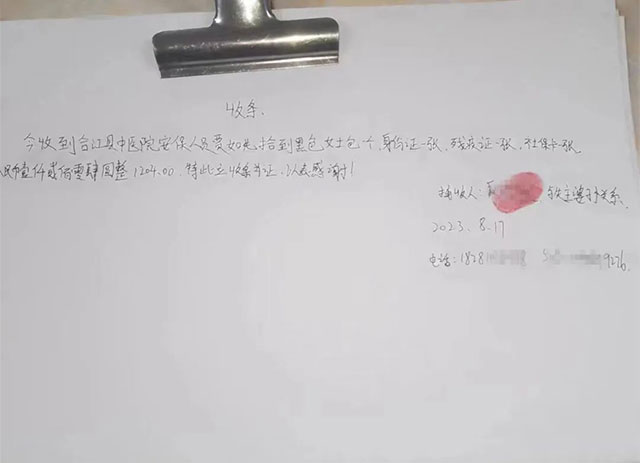 收条.
今收到台江县中医院安保人员爱如光,拾到黑色女士包一个,身份证一张,残疾证一张,社保卡一张,
民币壹仟贰佰零肆圆整1204.00.特此立收条为证,以表感谢!
接收人: 与失主婆子关系,
2023.8.17
电话:1828 9226